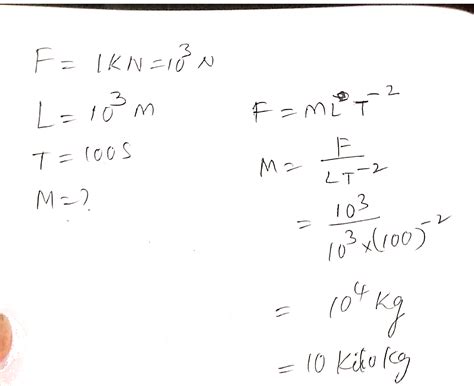 F = 1KN = 10³ N
L = 10³ M
T = 100S
M = ?
F = ML T⁻²
M = F / LT⁻²
= 10³ / 10³ × (100)⁻²
= 10⁴ kg
= 10 Kilo kg